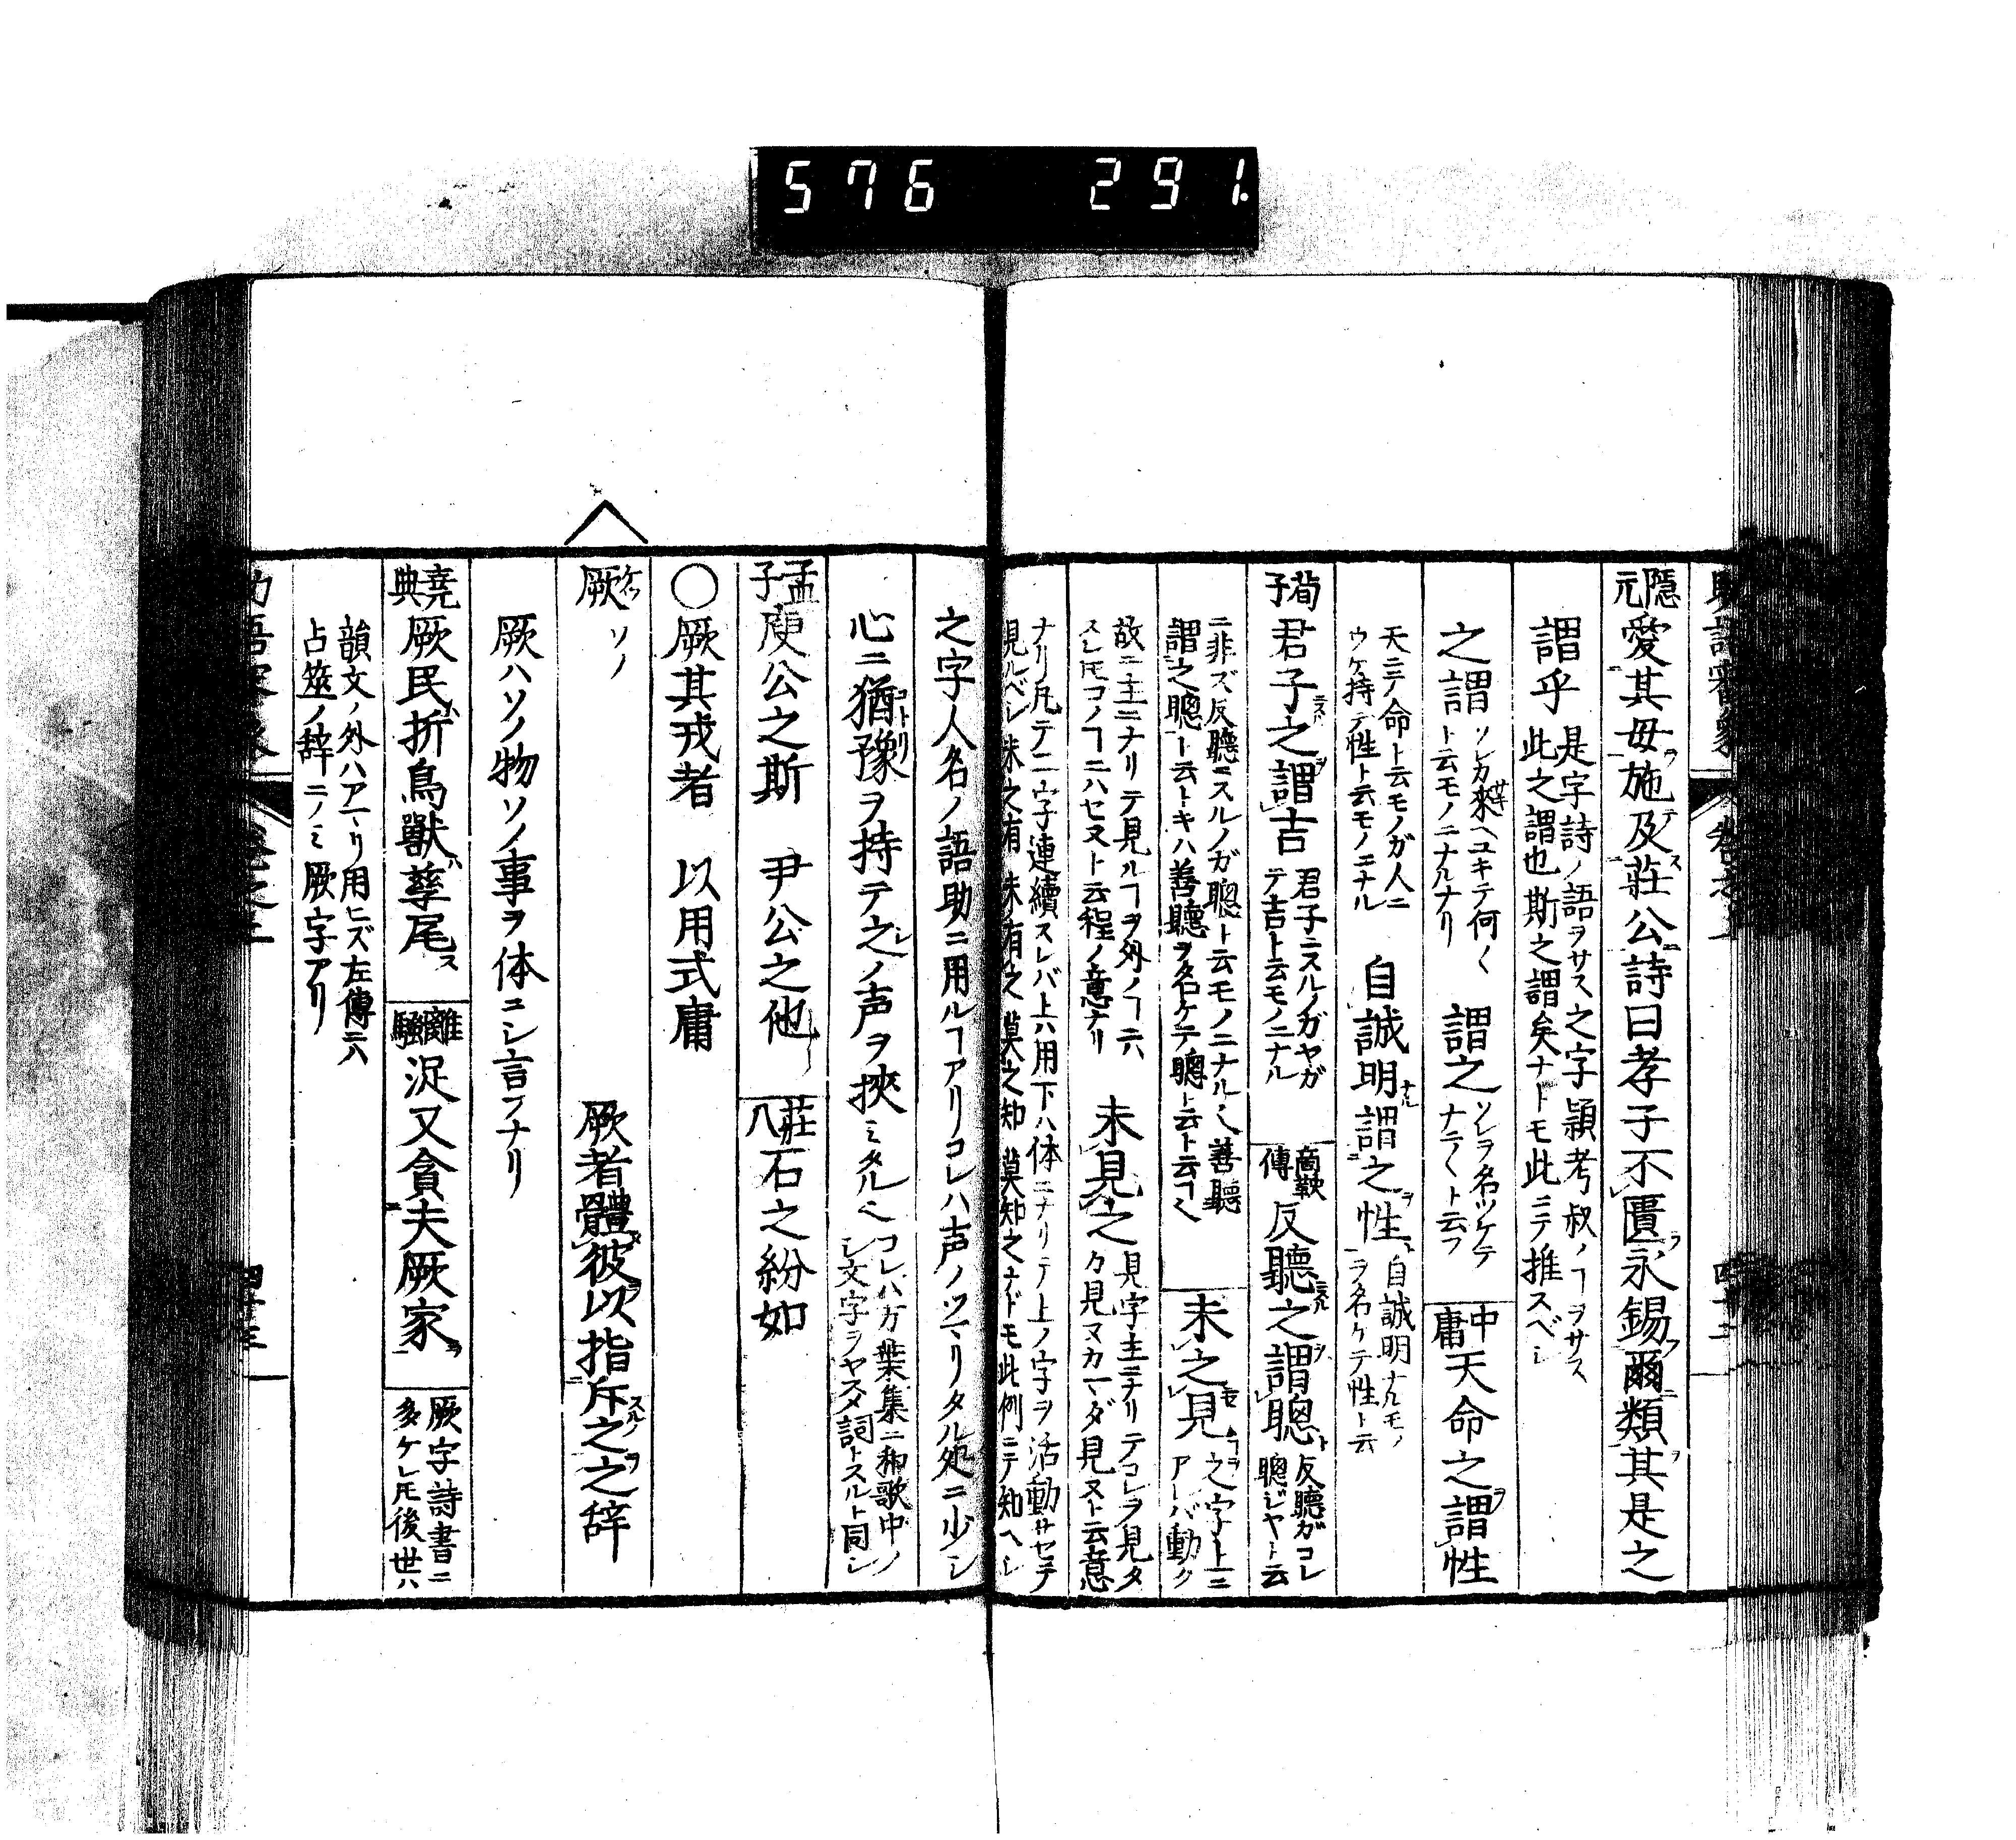 576 291.
隠元 愛其母施及荘公詩曰孝子不匱永錫爾類其是之
謂乎 是字詩ノ語ヲサス之字頴考叔ノヿヲサス
此之謂也斯之謂矣ナトモ此ニテ推スベシ
之謂 ソレカ來ヘユキテ何〱
ト云モノニナルナリ
謂之 ソレヲ名ツケテ
ナニ〱ト云フ
中庸 天命之謂性
天ニテノ命ト云モノガ人ニ
ウケ持テ性ト云モノニナル
自誠明謂之性 自誠明ナルモノ
ヲ名ケテ性ト云
荀子 君子之謂吉 君子ニスルノガヤガ
テ吉ト云モノニナル
商鞅傳 反聽之謂聰 反聽ガコレ
聰ジヤト云
ニ非ズ反聽ニスルノガ聰ト云モノニナル也善聽
謂之聰ト云トキハ善聽ヲ名ケテ聰ト云ト云ヿ也
未之見 之字上ニ
アレバ動ク
故ニ主ニナリテ見ルヿヲ外ノヿニハ
スレ𪜈コノヿニハセヌト云程ノ意ナリ
未見之 見字主ニナリテコレヲ見タ
カ見マカマダ見ヌト云意
ナリ凡テ二字連續スレバ上ハ用下ハ体ニナリテ上ノ字ヲ活動サセテ
見ルベシ未之有 未有之 莫之知 莫知之ナドモ此例ニテ知ヘシ
之字人名ノ語助ニ用ルヿアリコレハ声ノツマリタル処ニ少シ
心ニ猶豫ヲ持テ之ノ声ヲ挾ミタル也 コレハ万葉集ニ和歌中ノ
レ文字ヲヤスメ詞トスルト同シ
孟子 庾公之斯 尹公之他 荘八 石之紛如
〇厥其戎者 以用式庸
厥 ケツ ソノ 厥者體彼以指斥之之辞
厥ハソノ物ソノ事ヲ体ニシ言フナリ
堯典 厥民析鳥獸孳尾 離騷 浞又貪夫厥家 厥字詩書ニ
多ケレ𪜈後世ハ
韻文ノ外ハアマリ用ヒズ左傳ニハ
占筮ノ辞ニノミ厥字アリ